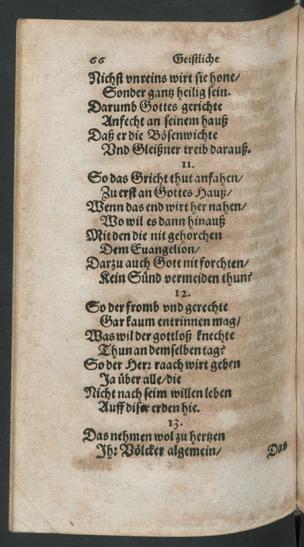 66 Geistliche
Nichst vnreins wirt sie hone/
Sonder gantz heilig sein.
Darumb Gottes gerichte
Anfecht an seinem hauß
Daß er die Bösenwichte
Vnd Gleißner treib darauß.
11.
So das Gricht thut anfahen/
Zu erst an Gottes Hauß/
Wenn das end wirt her nahen/
Wo wil es dann hinauß
Mit den die nit gehorchen
Dem Euangelion/
Darzu auch Gott nit forchten/
Kein Sünd vermeiden thun?
12.
So der fromb vnd gerechte
Gar kaum entrinnen mag/
Was wil der gottloß knechte
Thun an demselben tag?
So der Herr raach wirt geben
Ja über alle/die
Nicht nach seim willen leben
Auff diser erden hie.
13.
Das nehmen wol zu hertzen
Ihr Völcker algemein/
Das